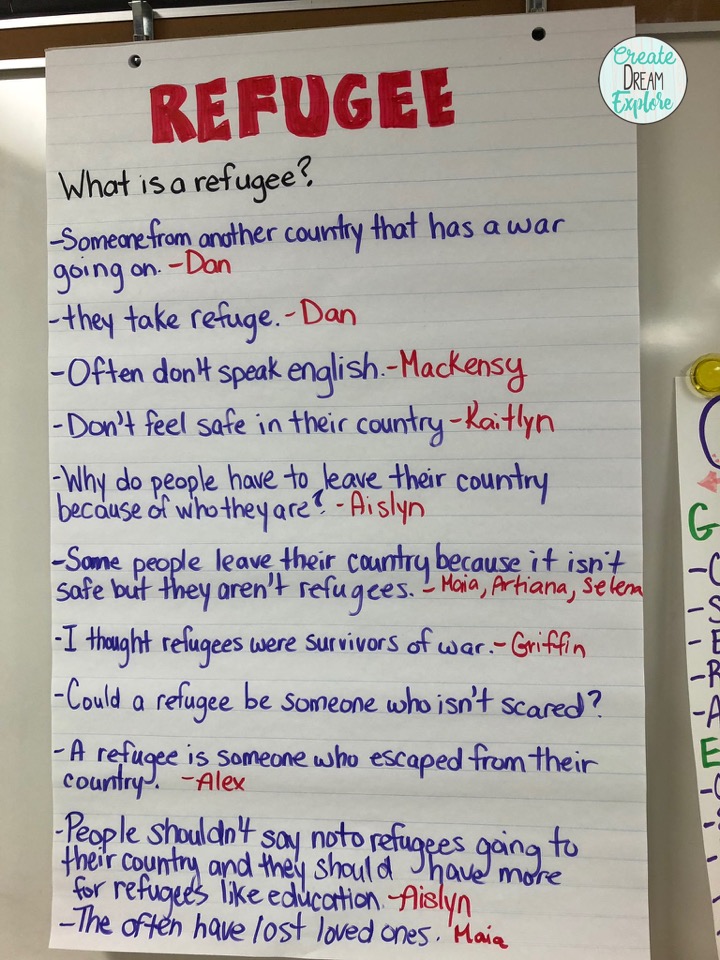 Create
DREAM
Explore
REFUGEE
What is a refugee?
-Someone from another country that has a war
going on. -Dan
-they take refuge. -Dan
-Often don't speak english. -Mackensy
-Don't feel safe in their country -Kaitlyn
-Why do people have to leave their country
because of who they are? -Aislyn
-Some people leave their country because it isn't
safe but they aren't refugees. - Maia, Artiana, Selena
-I thought refugees were survivors of war. -Griffin
-Could a refugee be someone who isn't scared?
-A refugee is someone who escaped from their
country. -Alex
-People shouldn't say no to refugees going to
their country and they should have more
for refugees like education. -Aislyn
-The often have lost loved ones. Maia
G
-C
-S
-E
-R
-A
E